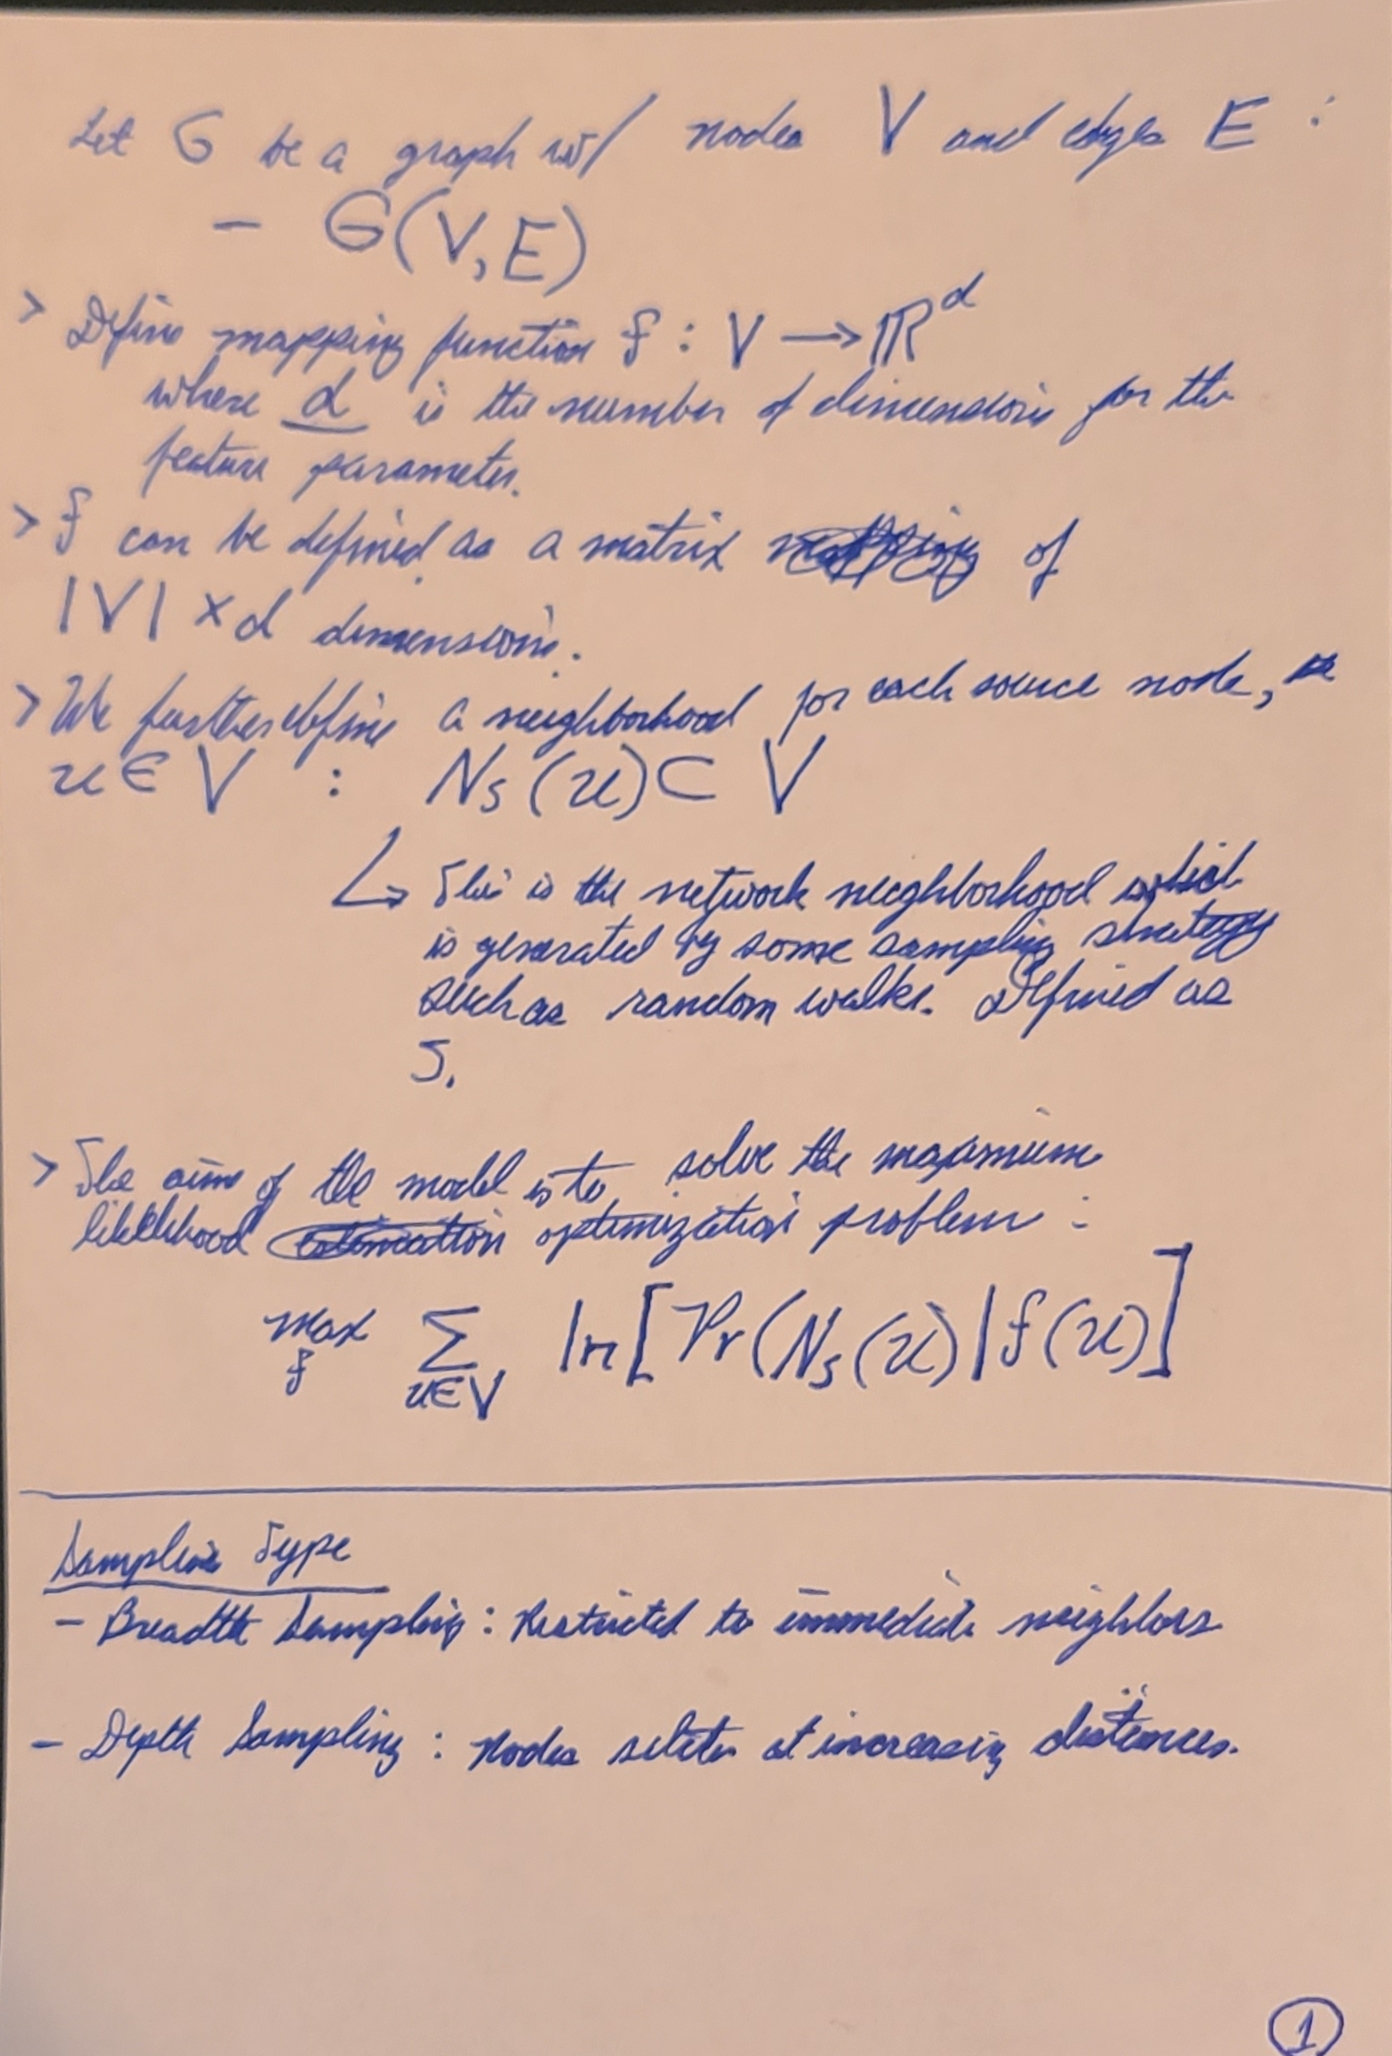 Let G be a graph w/ nodes V and edges E :
– G(V,E)
> Define mapping function f : V → ℝ^d
where d is the number of dimensions for the
feature parameter.
> f can be defined as a matrix mapping of
|V| × d dimensions.
> We further define a neighborhood for each source node,
u ∈ V : N_s(u) ⊂ V
↳ This is the network neighborhood which
is generated by some sampling strategy
such as random walks. Defined as
S.
> The aim of the model is to solve the maximum
likelihood estimation optimization problem :
max_f Σ_{u∈V} ln[Pr(N_s(u)|f(u)]
Sampling Type
– Breadth Sampling : Restricted to immediate neighbors
– Depth Sampling : Nodes at increasing distances.
1